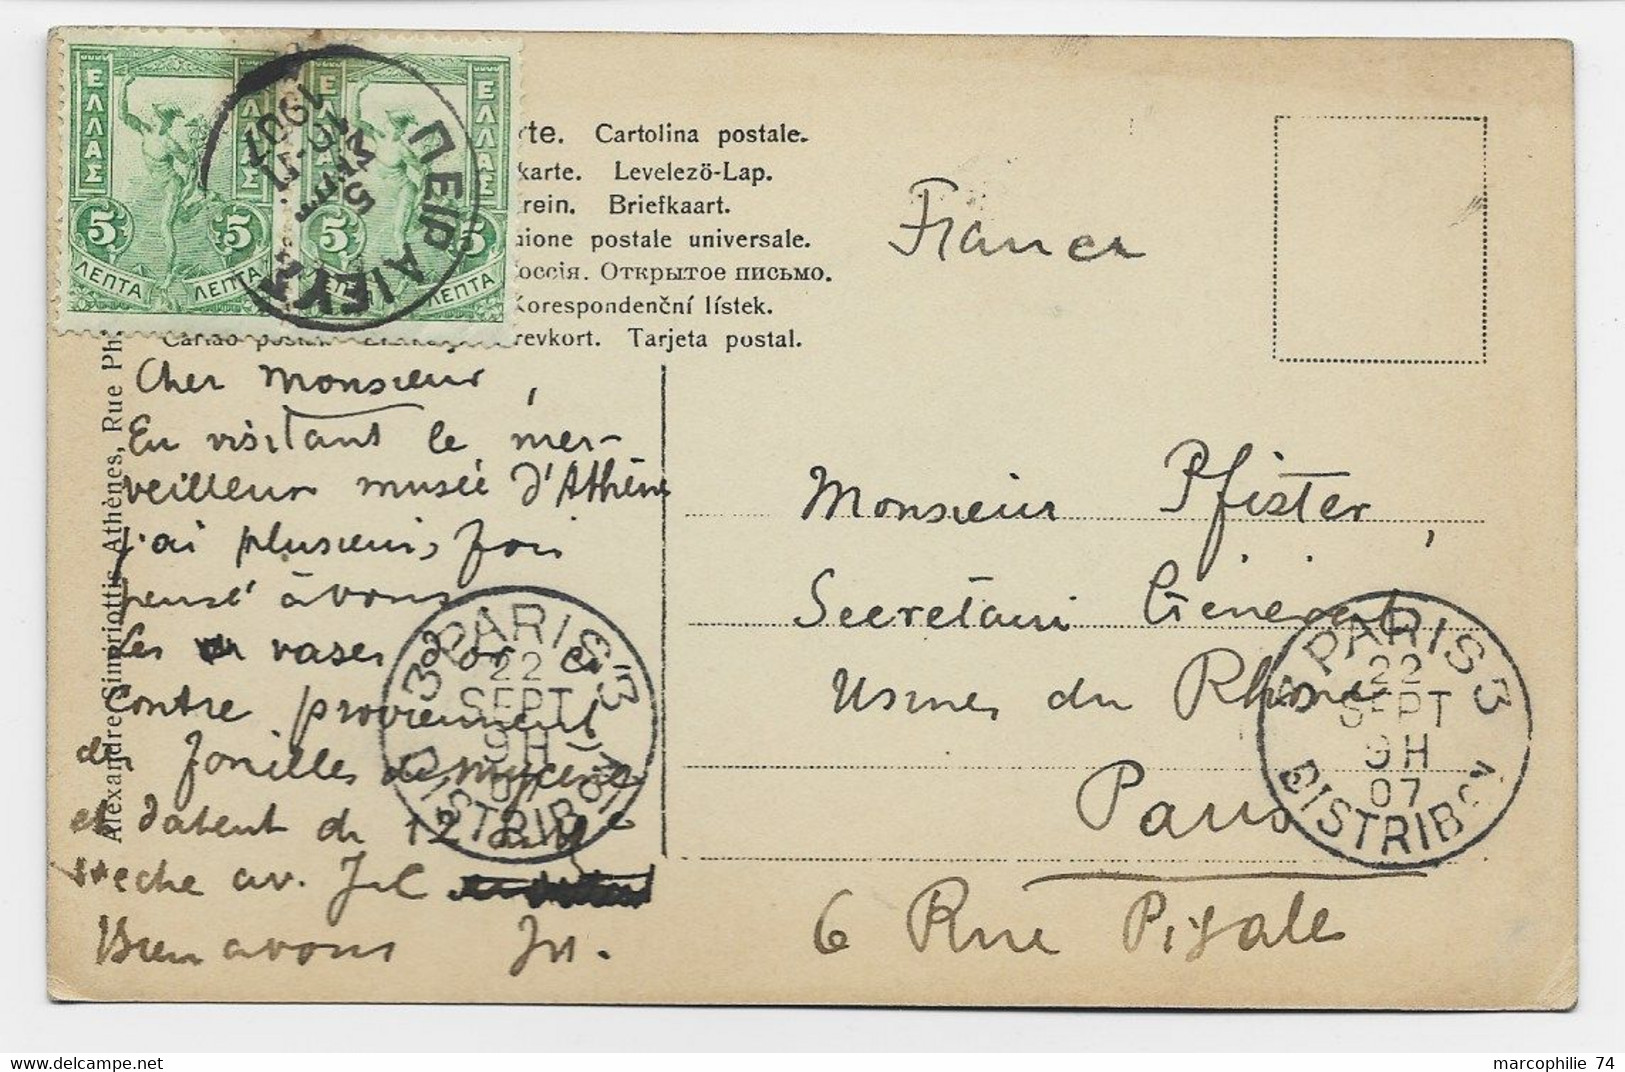 ΕΛΛΑΣ ΕΛΛΑΣ ΕΛΛΑΣ ΕΛΛΑΣ
5 5 5 5
ΛΕΠΤΑ ΛΕΠΤΑ ΛΕΠΤΑ
ΠΕΙΡΑΙΕΥΣ
5 ΣΕΠ
1907
rte. Cartolina postale.
karte. Levelező-Lap.
trein. Briefkaart.
nione postale universale.
Россія. Открытое письмо.
Korespondenční lístek.
revkort. Tarjeta postal.
Alexandre Simiriottis Athènes, Rue Ph
France
Cher Monsieur,
En visitant le mer-
veilleux musée d'Athènes
j'ai plusieurs fois
pensé à vous
Les vases d'or ci
contre proviennent
des fouilles de Mycène
et datent du 12
av. J.C
Bien à vous
Monsieur Pfister,
Secrétaire Général
Usines du Rhône
Paris
6 Rue Pigale
PARIS 3
22
SEPT
9H
07
DISTRIBON
PARIS 3
22
SEPT
9H
07
DISTRIBON
marcophilie 74